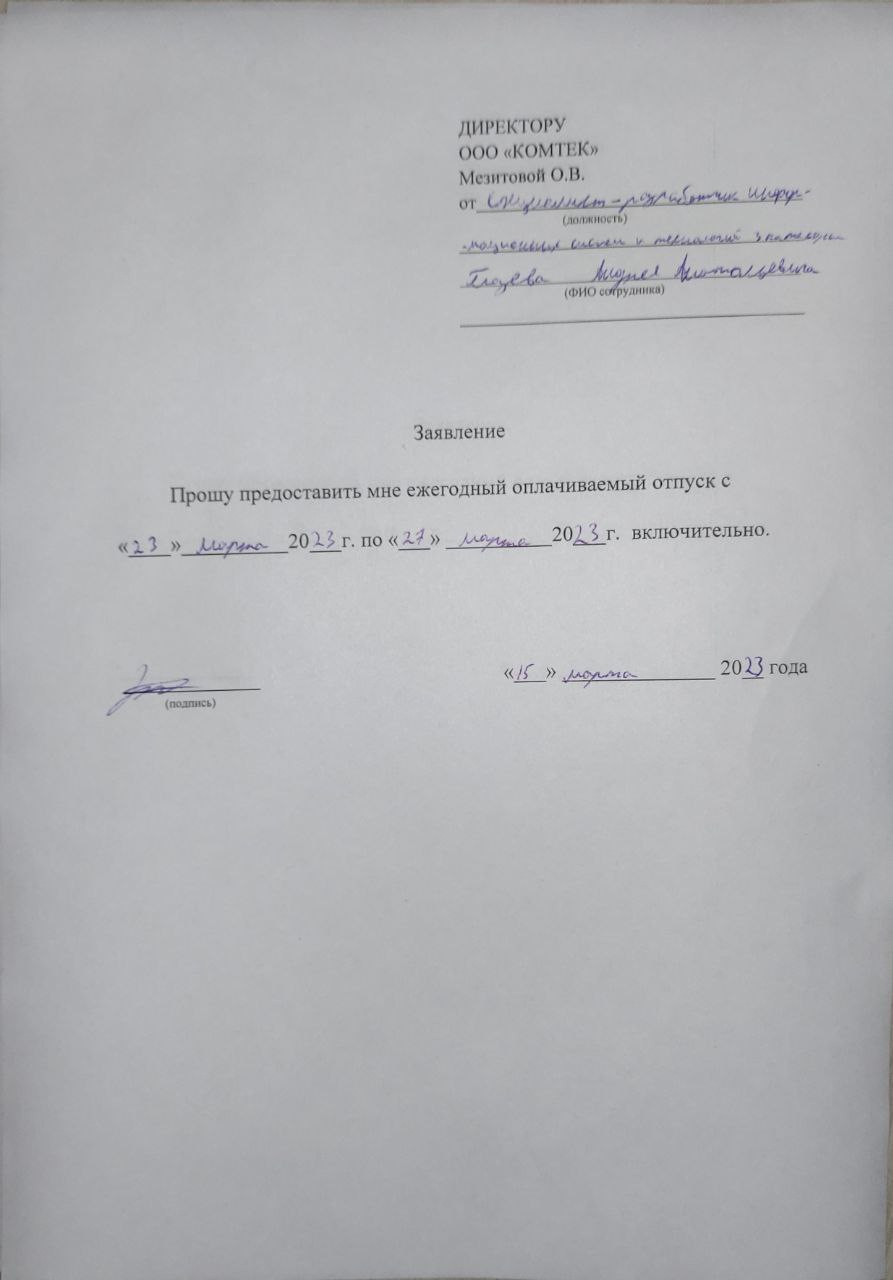 ДИРЕКТОРУ
ООО «КОМТЕК»
Мезитовой О.В.
от специалист-разработчик инфор-
(должность)
мационных систем и технологий 3 категории
Андрея Анатольевича
(ФИО сотрудника)
Заявление
Прошу предоставить мне ежегодный оплачиваемый отпуск с
«23» марта 2023г. по «27» марта 2023г. включительно.
«15» марта 2023 года
(подпись)